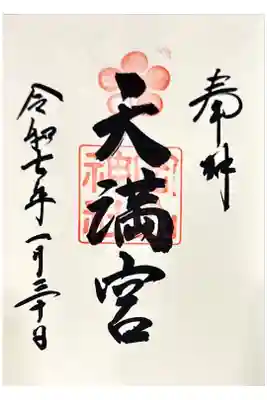 奉拝
天満宮
令和七年一月三十日